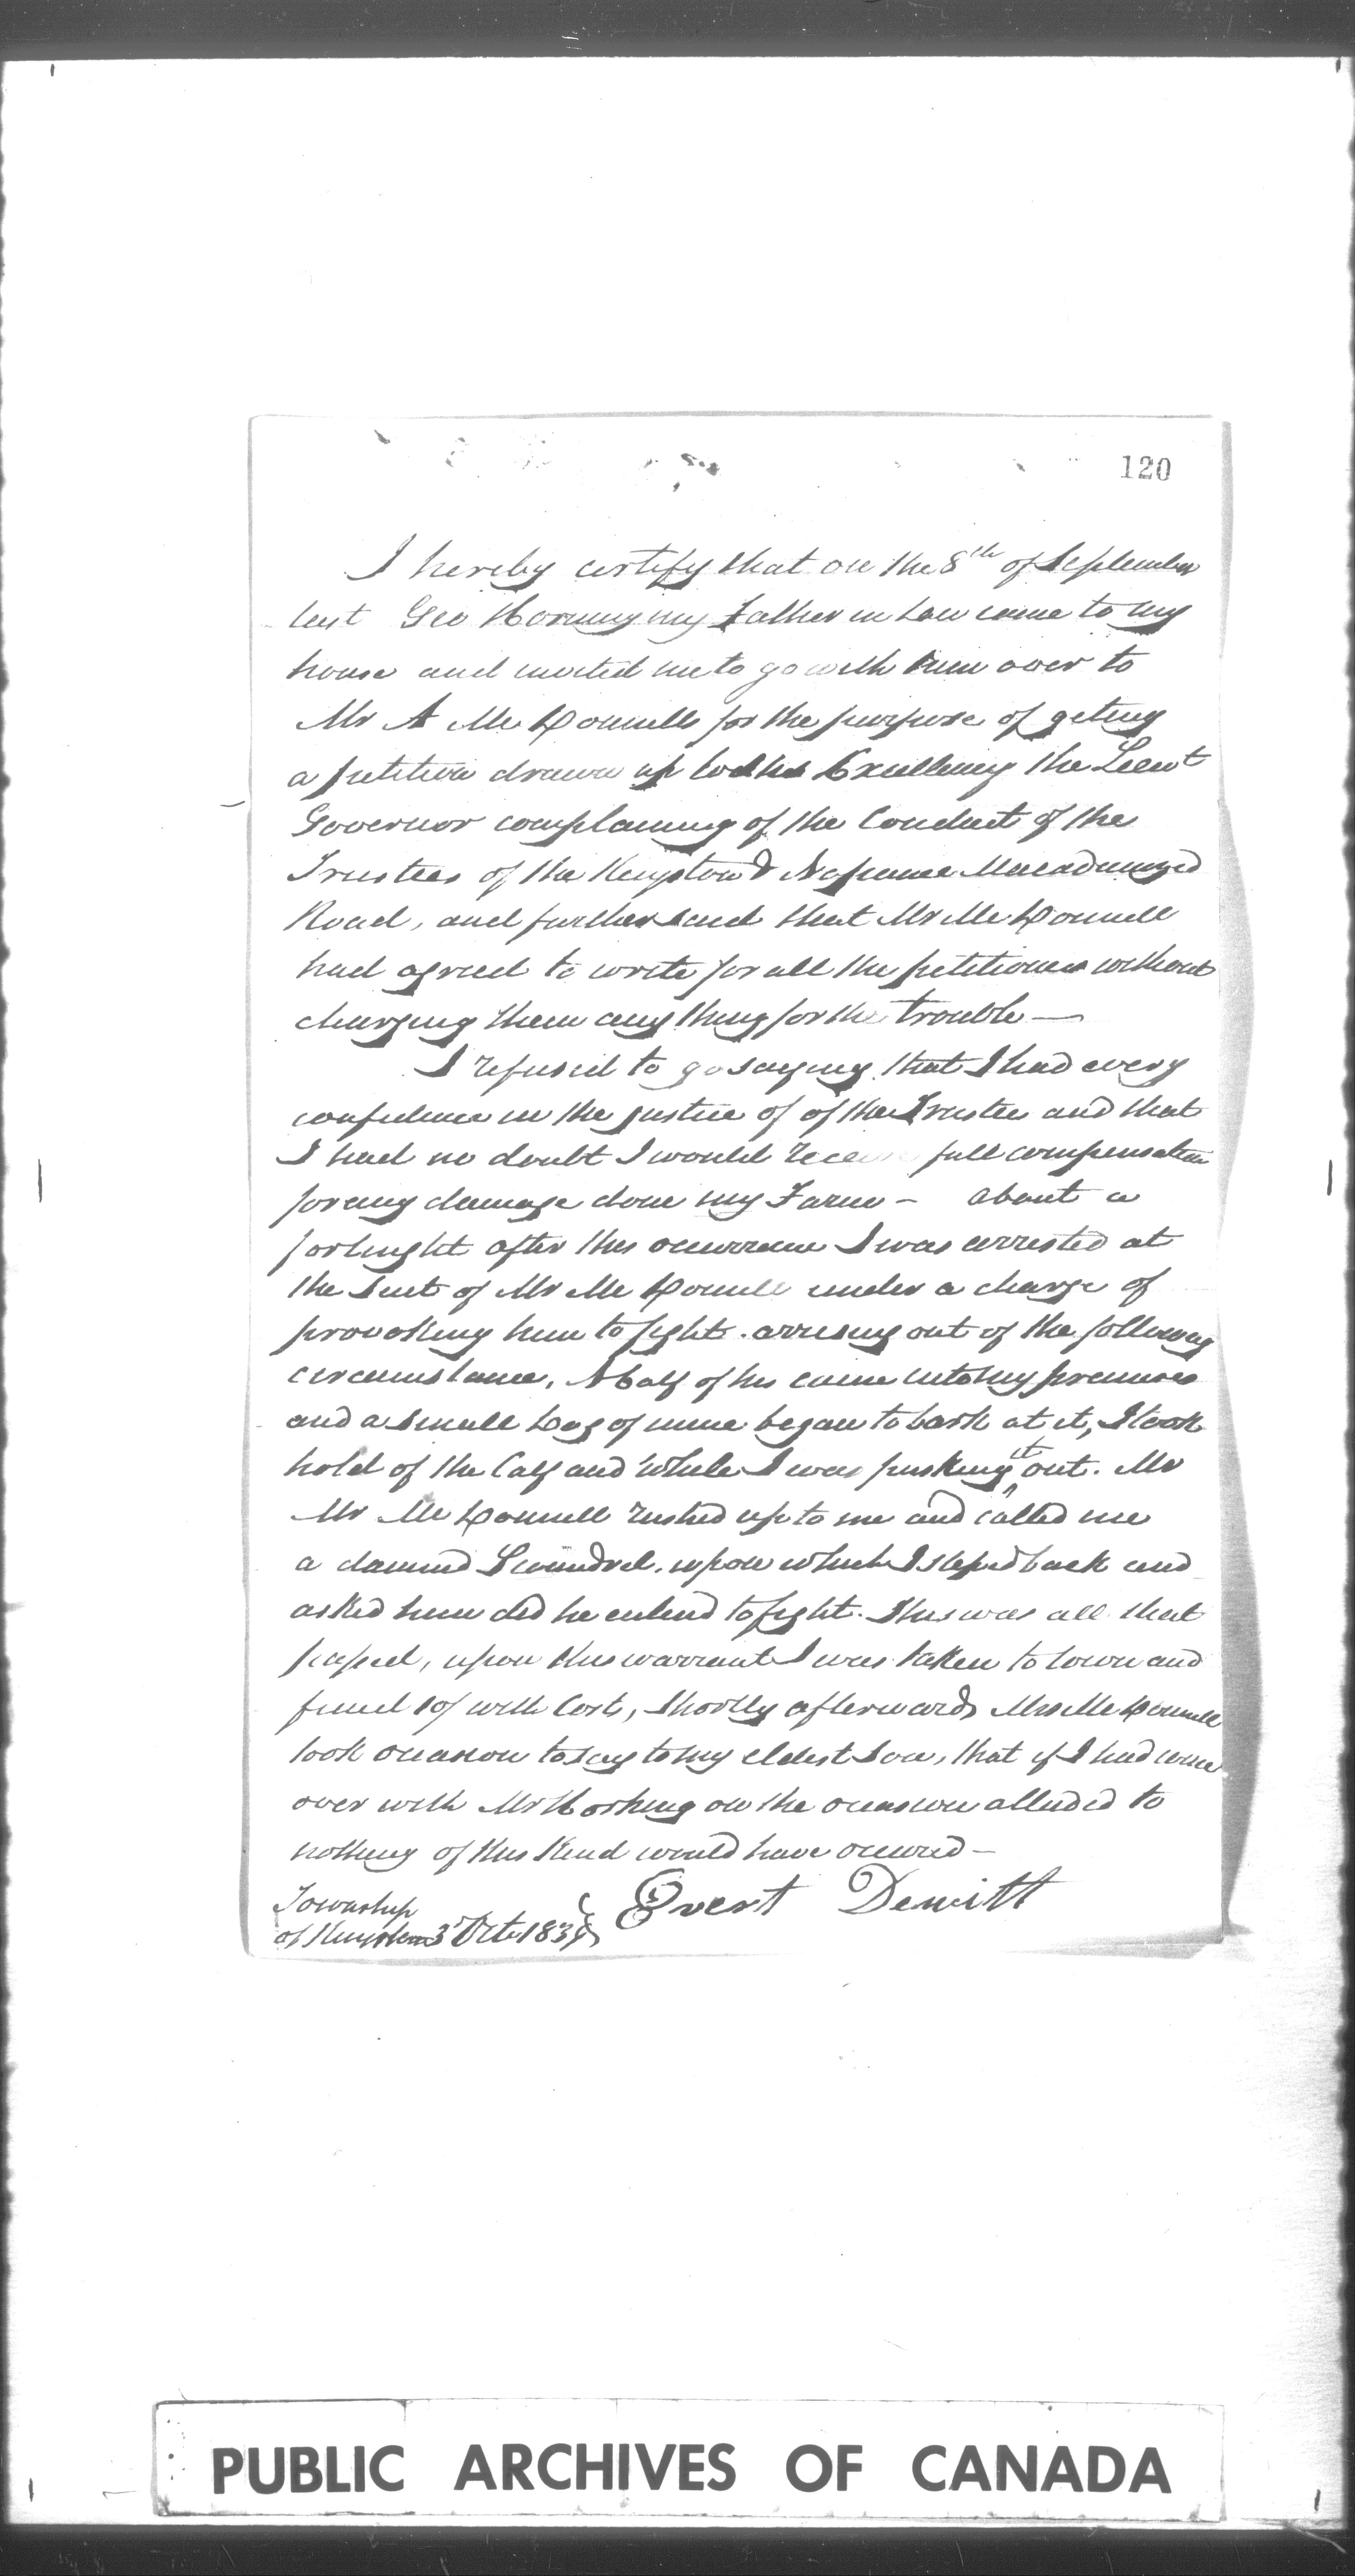 120
I hereby certify that on the 8th of September
last Geo my Father in Law came to my
house and invited me to go with him over to
Mr A Mc Donnells for the purpose of geting
a petition drawn up to His Excellency the Lieut
Governor complaining of the Conduct of the
Trustees of the Kingston & Napanee Macadamized
Road, and further said that Mr Mc Donnell
had agreed to write for all the petitioners without
charging them any thing for the trouble —
I refused to go saying that I had every
confidence in the justice of of the Trustees and that
I had no doubt I would receive full compensation
for any damage done my Farm — about a
fortnight after this occurrence I was arrested at
the Suit of Mr Mc Donell under a charge of
provoking him to fight. arrising out of the following
circumstance, A Calf of his came into my premises
and a small Dog of mine began to bark at it, I took
hold of the Calf and while I was pushing it out. Mr
Mr Mc Donnell rushed up to me and called me
a damned Scoundrel. upon which I steped back and
asked him did he entend to fight. This was all that
passed, upon this warrant I was taken to town and
fined 10/ with Costs, Shortly afterwards Mrs Mc Donnell
took occasion to say to my eldest Son, that if I had come
over with Mr on the occasion alluded to
nothing of this kind would have occured —
Township
of Kingston 3d Octr Evert Dewitt
PUBLIC ARCHIVES OF CANADA